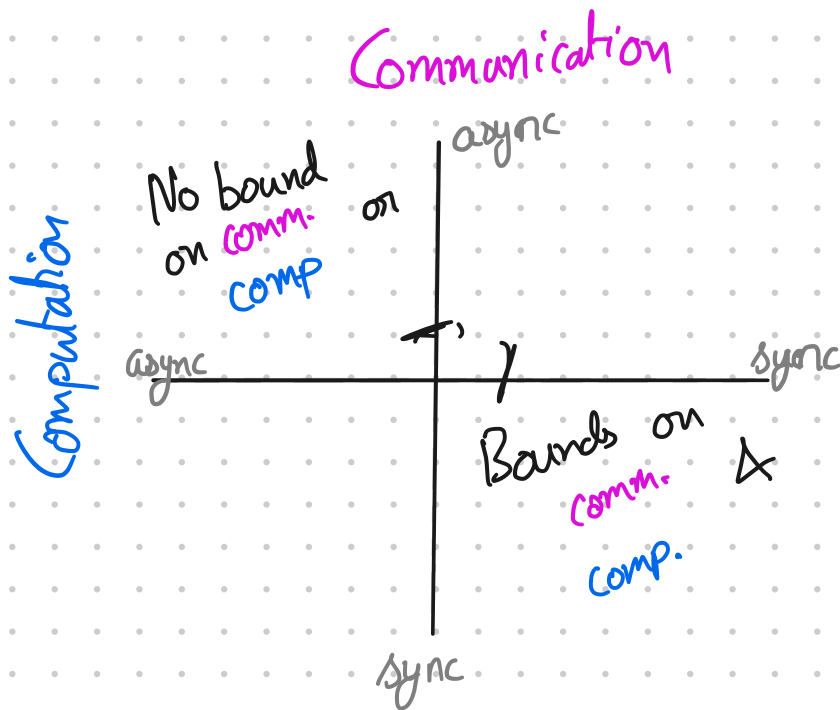 Communication
async
No bound
on comm. or
comp
Computation
async
sync
Bounds on
comm. &
comp.
sync